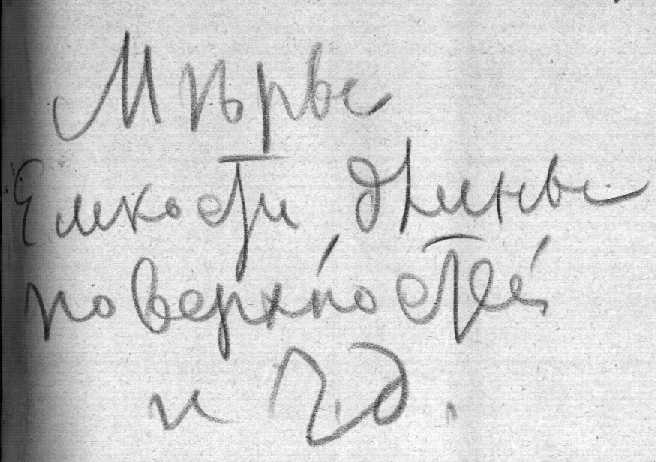 Мѣры
Емкости длины
поверхностей
и т. д.